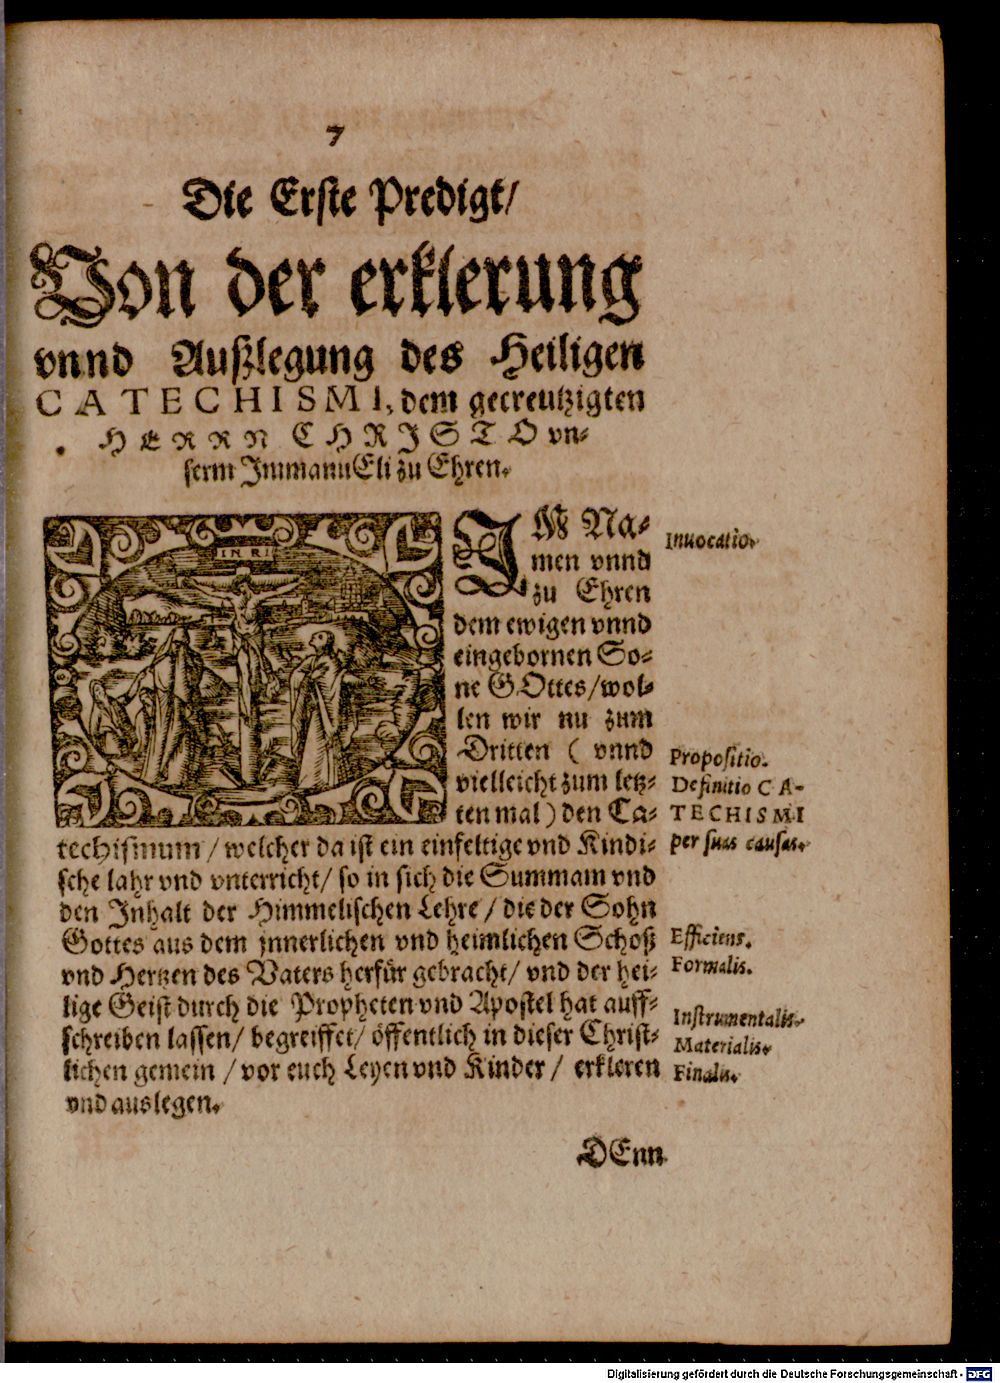 7
Die Erste Predigt/
Von der erklerung
vnnd Außlegung des Heiligen
CATECHISMI, dem gecreutzigten
HERRN CHRISTO vn-
serm JmmanuEli zu Ehren.
IN RI
JM Na-
men vnnd
zu Ehren
dem ewigen vnnd
eingebornen So-
ne GOttes/wol-
len wir nu zum
Dritten ( vnnd
vielleicht zum letz-
ten mal) den Ca-
techismum/ welcher da ist ein einfeltige vnd Kindi-
sche lahr vnd vnterricht/ so in sich die Summam vnd
den Inhalt der Himmelischen Lehre/ die der Sohn
Gottes aus dem jnnerlichen vnd heimlichen Schoß
vnd Hertzen des Vaters herfür gebracht/ vnd der hei-
lige Geist durch die Propheten vnd Apostel hat auff-
schreiben lassen/ begreiffet/ öffentlich in dieser Christ-
lichen gemein/ vor euch Leyen vnd Kinder/ erkleren
vnd auslegen.
Inuocatio.
Propositio.
Definitio CA-
TECHISMI
per suas causas.
Efficiens.
Formalis.
Instrumentalis.
Materialis.
Finalis.
DEnn
Digitalisierung gefördert durch die Deutsche Forschungsgemeinschaft - DFG